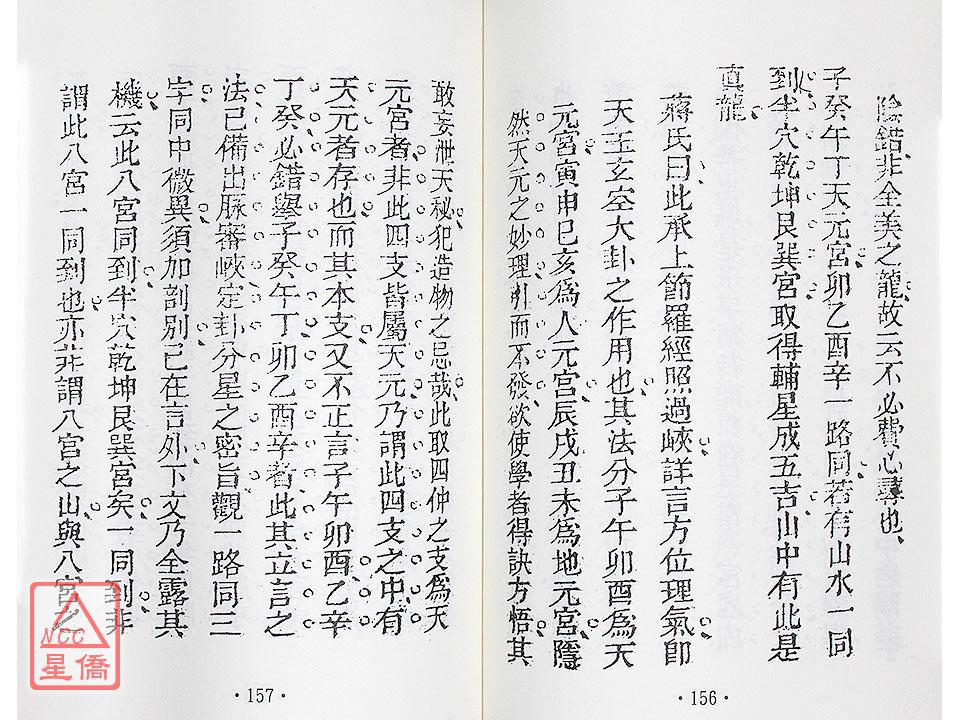 陰錯非全美之龍故云不必費心尋也
子癸午丁天元宮卯乙酉辛一路同若有山水一同
到半穴乾坤艮巽宮取得輔星成五吉山中有此是
真龍
蔣氏曰此承上節羅經照過峽詳言方位理氣卽
天玉玄空大卦之作用也其法分子午卯酉為天
元宮寅申巳亥為人元宮辰戌丑未為地元宮隱
然天元之妙理引而不發欲使學者得訣方悟其
·156·
敢妄泄天秘犯造物之忌哉此取四仲之支為天
元宮者非此四支皆屬天元乃謂此四支之中有
天元者存也而其本支又不正言子午卯酉乙辛
丁癸必錯舉子癸午丁卯乙酉辛者此其立言之
法已備出脉審峽定卦分星之密旨觀一路同三
字同中微異須加剖別已在言外下文乃全露其
機云此八宮同到半穴乾坤艮巽宮矣一同到非
謂此八宮一同到也亦非謂八宮之山與八宮之
·157·
NCC
星僑